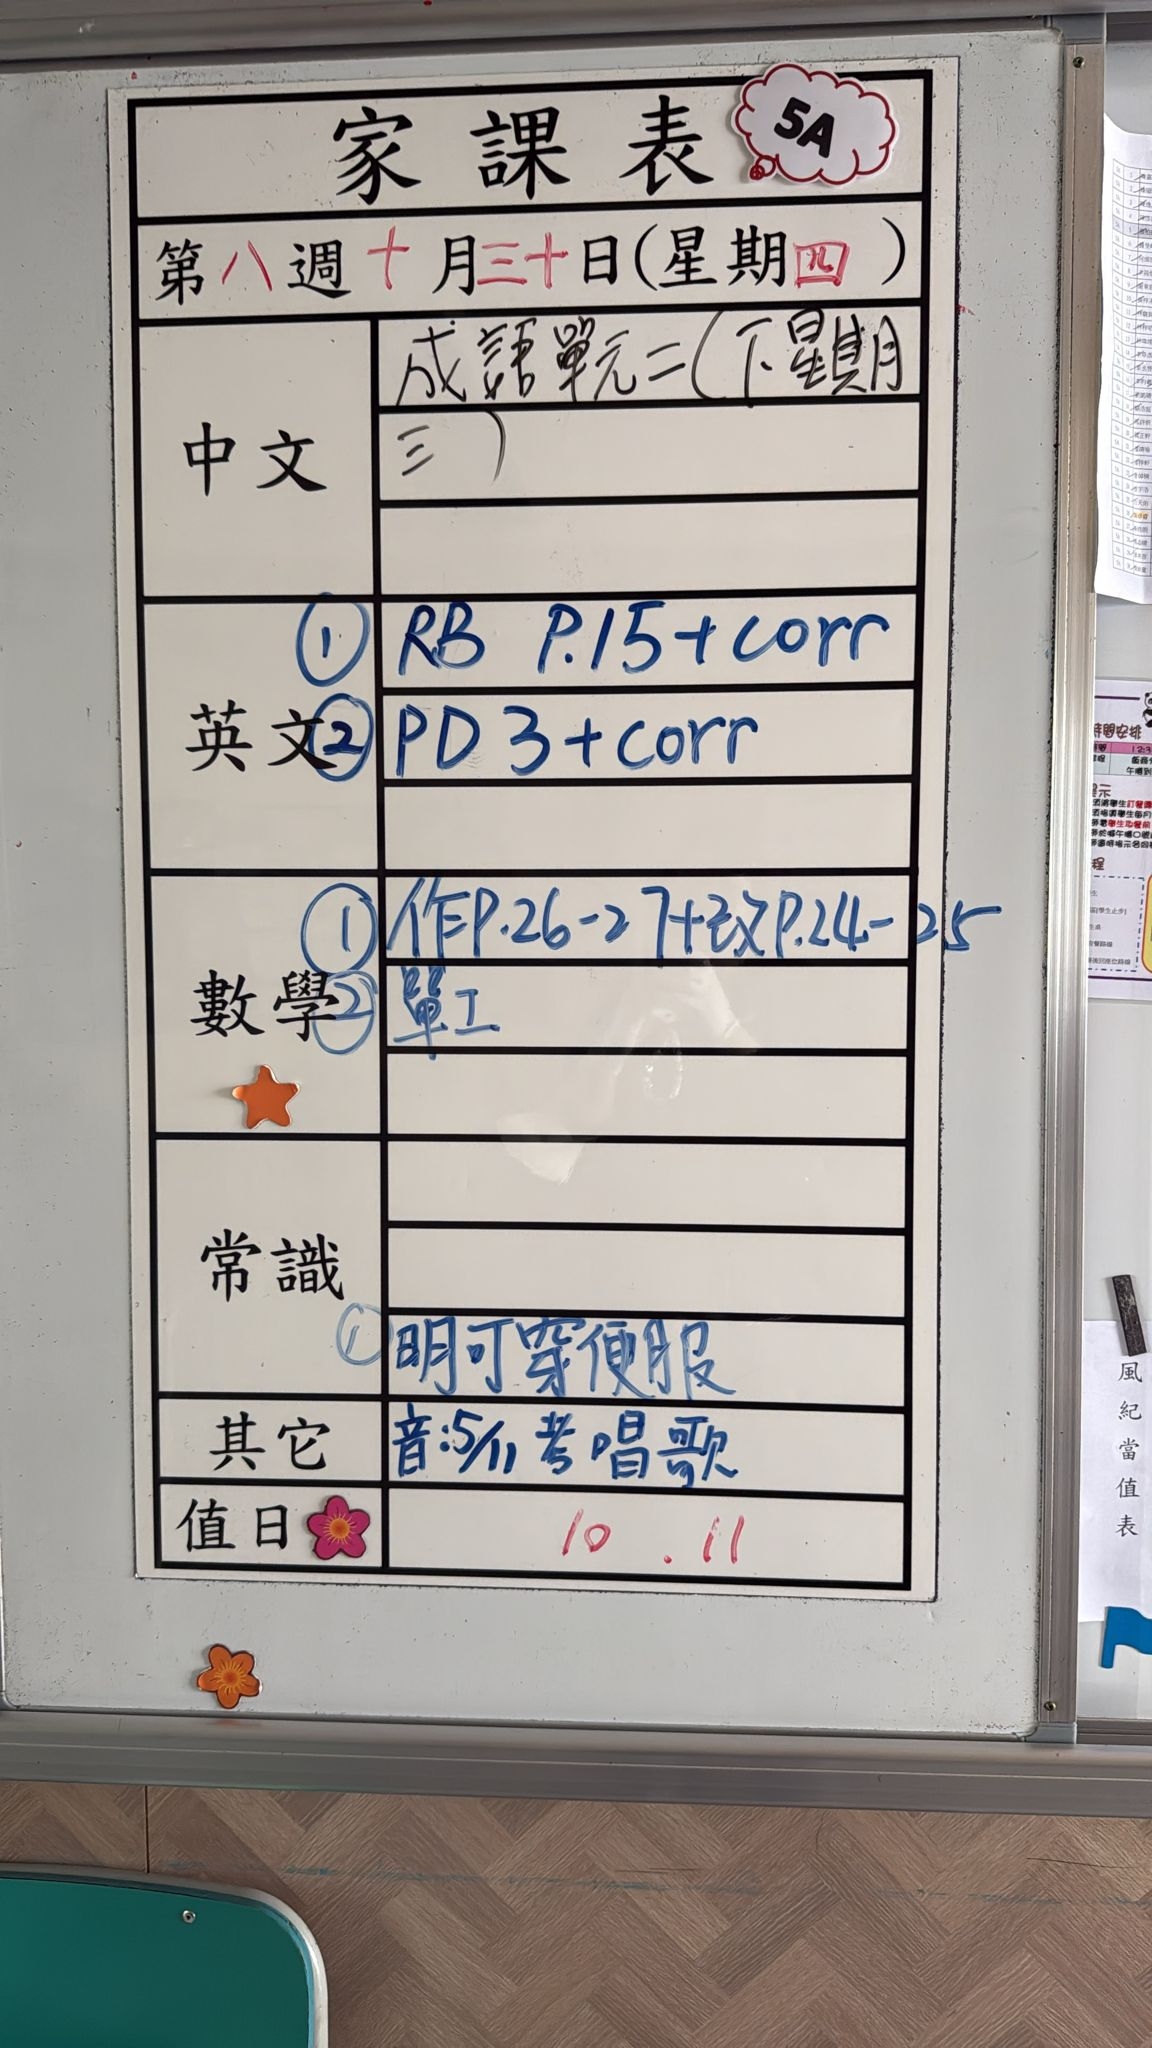 家課表
5A
第八週十月三十日(星期四)
中文
成語單元二(下星期
三)
英文
① RB P.15+corr
② PD 3+corr
數學
① 作P.26-27+改P.24-25
② 單工
常識
① 明可穿便服
其它
音:5/11 考唱歌
值日
10 . 11
風紀當值表